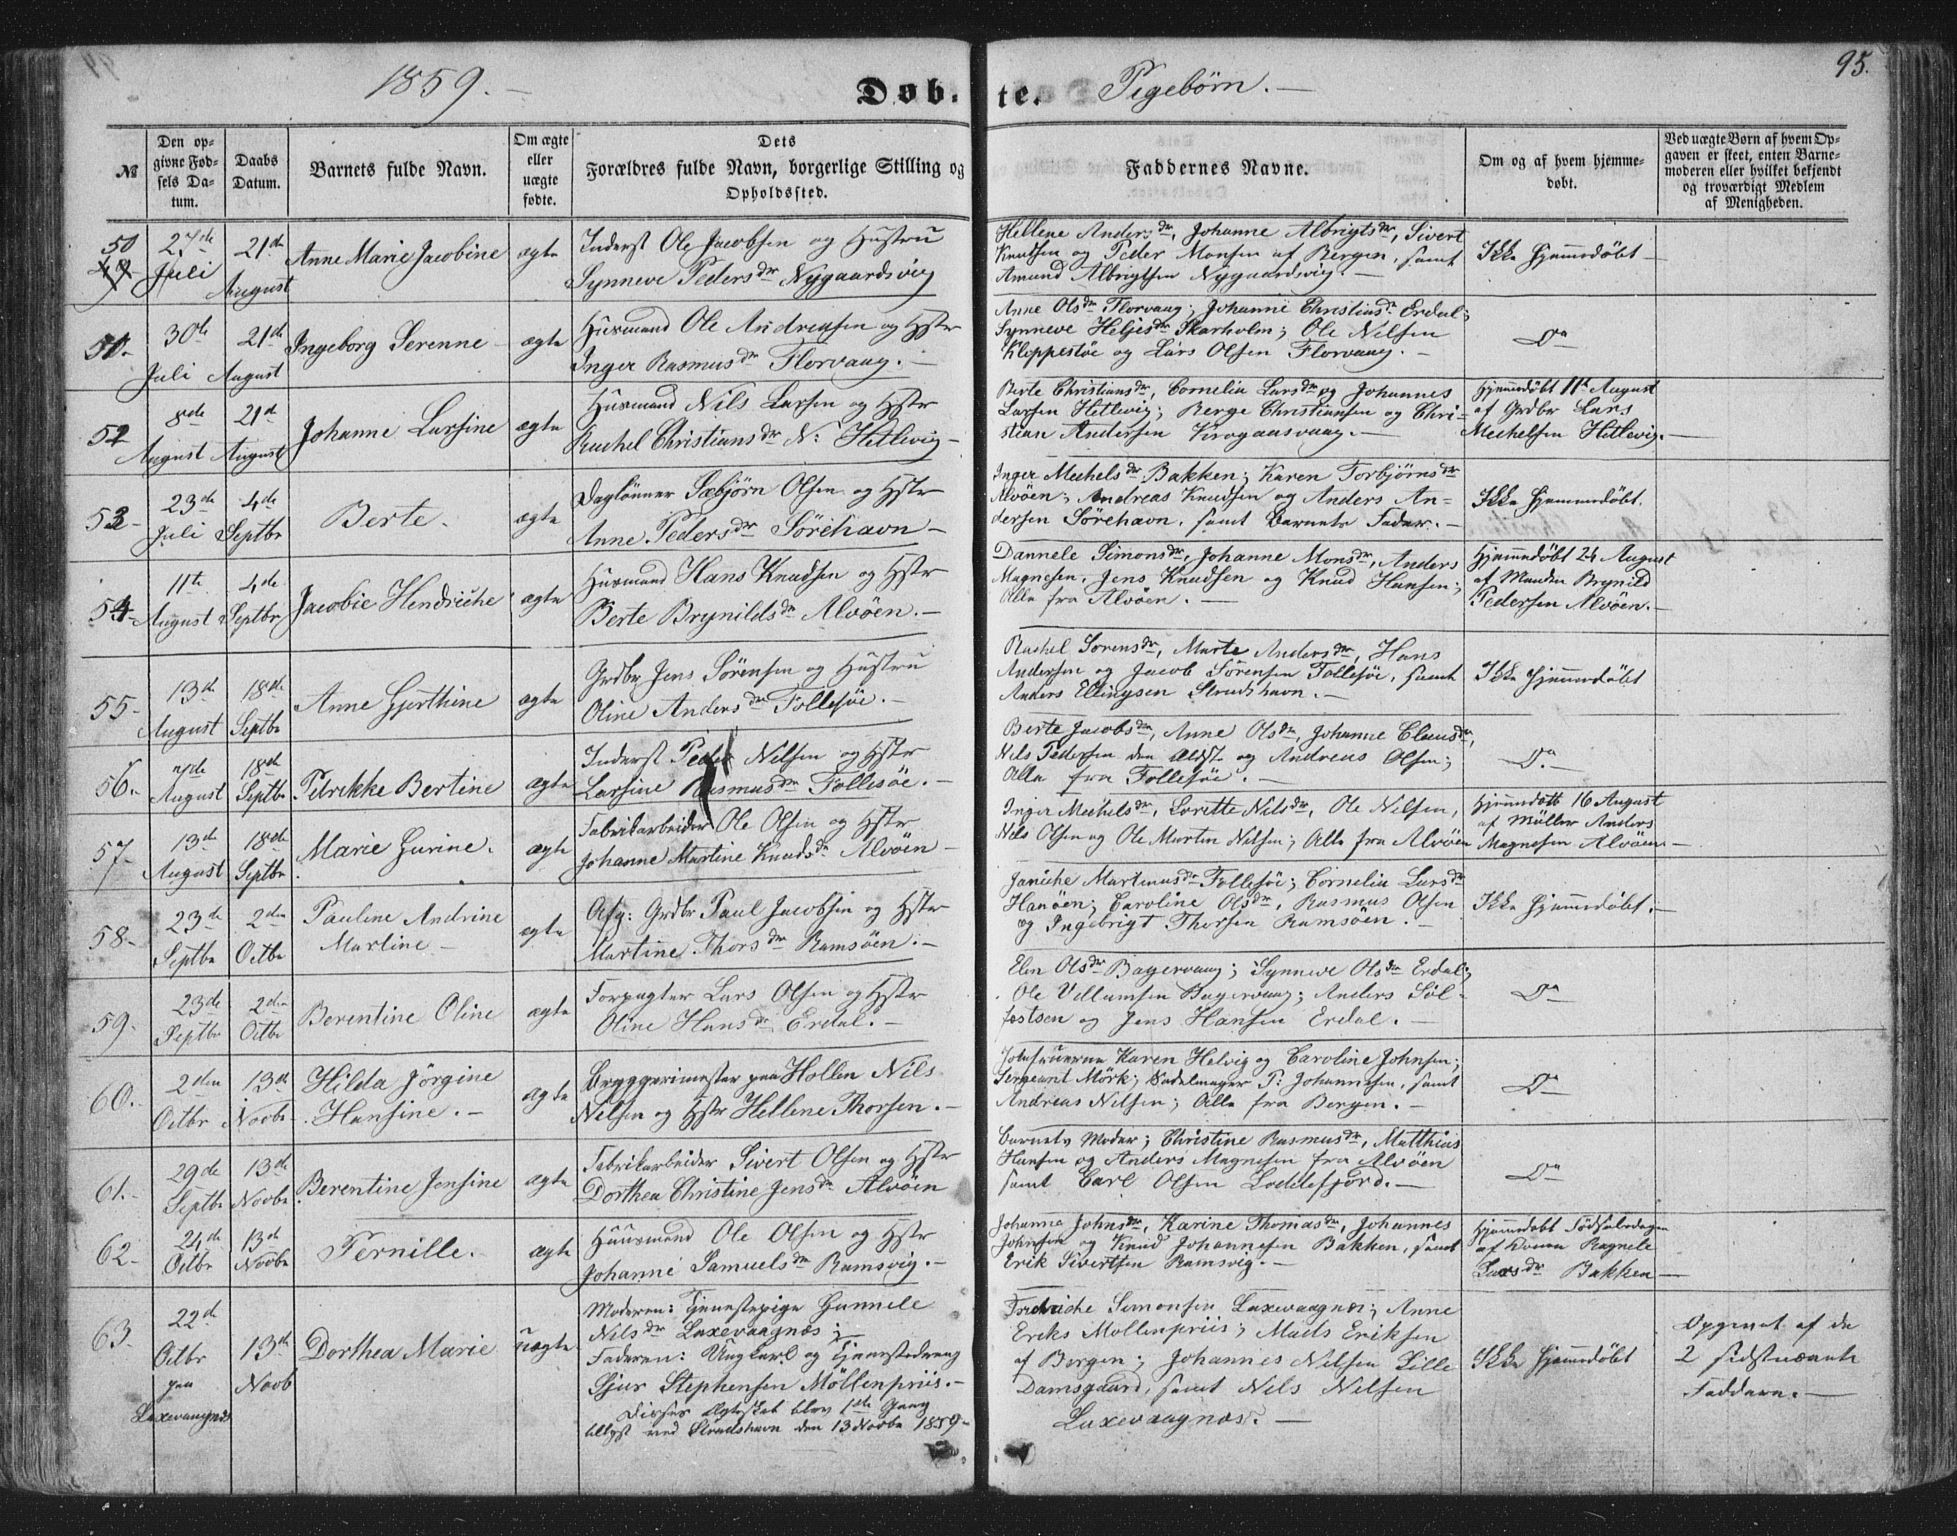 1859.
Døb-te. Pigebørn.
95.
№
Den op-
givne Fød-
sels Da-
tum.
Daabs
Datum.
Barnets fulde Navn.
Om ægte
eller
uægte
fødte.
Dets
Forældres fulde Navn, borgerlige Stilling og
Opholdssted.
Faddernes Navne.
Om og af hvem hjemme-
døbt.
Ved uægte Børn af hvem Op-
gaven er skeet, enten Barne-
moderen eller hvilket bekjendt
og troværdigt Medlem
af Menigheden.
50
27de Juli
21de August
Anne Marie Jacobine
ægte
Inderst Ole Jacobsen og Hustru
Synneve Pedersdr Nygaardsvig
Hellene Andersdr, Johanne Albrigtsdr, Sivert
Knudsen og Peder Monsen af Bergen, samt
Amund Albrigtsen Nygaardsvig
Ikke hjemmedøbt
51.
30te Juli
21de August
Ingeborg Serenne
ægte
Huusmand Ole Andreasen og Hstr
Inger Rasmusdr Florvaag.
Anne Olsdr Florvaag; Johanne Christiansdr Erdal;
Synneve Heljesdr Skarholm; Ole Nilsen
Kleppestøe og Lars Olsen Florvaag.
Do
52
8de August
21de August
Johanne Larsine
ægte
Huusmand Nils Larsen og Hstr
Rachel Christiansdr N: Hetlevig
Berte Christiansdr, Cornelia Larsdr og Johannes
Larsen Hetlevig; Berge Christiansen og Chri-
stian Andersen Krogaasvaag.
Hjemmedøbt 11te August
af Grdbr Lars
Mechelsen Hetlevig.
53
23de Juli
4de Septbr
Berte.
ægte
Daglønner Sæbjørn Olsen og Hstr
Anne Pedersdr Sørehavn
Inger Mechelsdr Bakken; Karen Torbjørnsdr
Alvøen; Andreas Knudsen og Anders An-
dersen Sørehavn, samt Barnets Fader.
Ikke hjemmedøbt.
54
11te August
4de Septbr
Jacobie Hendriche
ægte
Huusmand Hans Knudsen og Hstr
Berte Brynildsdr Alvøen.
Dannele Simonsdr, Johanne Monsdr, Anders
Magnesen, Jens Knudsen og Knud Hansen;
Alle fra Alvøen.
Hjemmedøbt 24 August
af Manden Brynild
Pedersen Alvøen.
55
13de August
18de Septbr
Anne Gjerthine
ægte
Grdbr Jens Sørensen og Hustru
Oline Andersdr Follesøe.
Rachel Sørensdr, Marte Andersdr, Hans
Andersen og Jacob Sørensen Follesøe, samt
Anders Ellingsen Strudshavn.
Ikke hjemmedøbt
56.
7de August
18de Septbr
Petrikke Bertine
ægte
Inderst Peder Nilsen og Hstr
Larsine Rasmusdr Follesøe.
Berte Jacobsdr, Anne Olsdr, Johanne Clausdr,
Nils Pedersen den Ældst. og Andreas Olsen;
Alle fra Follesøe.
Do.
57
13de August
18de Septbr
Marie Gurine.
ægte
Fabrikarbeider Ole Olsen og Hstr
Johanne Martine Knudsdr Alvøen
Inger Mechelsdr, Lorette Nilsdr, Ole Nilsen,
Nils Olsen og Ole Martin Nilsen; Alle fra Alvøen
Hjemmedøbt 16 August
af Møller Anders
Magnesen Alvøen.
58.
23de Septbr
2den Octbr
Pauline Andrine
Martine
ægte
Afg: Grdbr Paul Jacobsen og Hstr
Martine Thorsdr Ramsøen.
Janiche Martinusdr Follesøe; Cornelia Larsdr
Hanøen; Caroline Olsdr, Rasmus Olsen
og Ingebrigt Thorsen Ramsøen.
Ikke hjemmedøbt.
59.
23de Septbr
2den Octbr
Berentine Oline
ægte
Forpagter Lars Olsen og Hstr
Oline Hansdr Erdal.
Elen Olsdr Bagervaag; Synneve Olsdr Erdal;
Ole Villumsen Bagervaag; Anders Søl-
festsen og Jens Hansen Erdal.
Do
60.
2den Octbr
13de Novbr
Hilda Jørgine
Hansine.
ægte
Bryggerimester paa Hollen Nils
Nelsen og Hstr Hellene Thorsen.
Jomfruerne Karen Helvig og Caroline Johnsen;
Sergeant Mörk; Sadelmager P: Johannesen, samt
Andreas Nelsen; Alle fra Bergen.
Do
61.
29de Septbr
13de Novbr
Berentine Jensine
ægte
Fabrikarbeider Sivert Olsen og Hstr
Dorthea Christine Jensdr Alvøen
Barnets Moder; Christine Rasmusdr, Matthias
Hansen og Anders Magnesen fra Alvøen
samt Carl Olsen Loddefjord.
Do
62.
24de Octbr
13de Novbr
Pernille.
ægte
Huusmand Ole Olsen og Hstr
Johanne Samuelsdr Ramsvig.
Johanna Johnsdr, Karine Thomasdr, Johannes
Johnsen og Knud Johannesen Bakken, samt
Erik Sivertsen Ramsvig.
Hjemmedøbt Fødselsdagen
af Konen Ragnele
Larsdr Bakken
63.
22de Octbr
paa
Laxevaagnæs
13de Novb
Dorthea Marie
uægte
Moderen: Tjenestepige Gunnele
Nilsdr Laxevaagnæs;
Faderen: Ungkarl og Tjenestedreng
Sjur Stephensen Möllenpriis.
Disses Ægteskab blev 1ste Gang
tillyst ved Strudshavn den 13 Novbr 1859
Fredriche Simonsen Laxevaagnæs; Anne
Eriks Möllenpriis; Mads Eriksen
af Bergen; Johannes Nilsen Lille
Damsgaard, samt Nils Nilsen
Laxevaagnæs.
Ikke hjemmedøbt
Opgivet af de
2 sidstnævnte
Faddere.